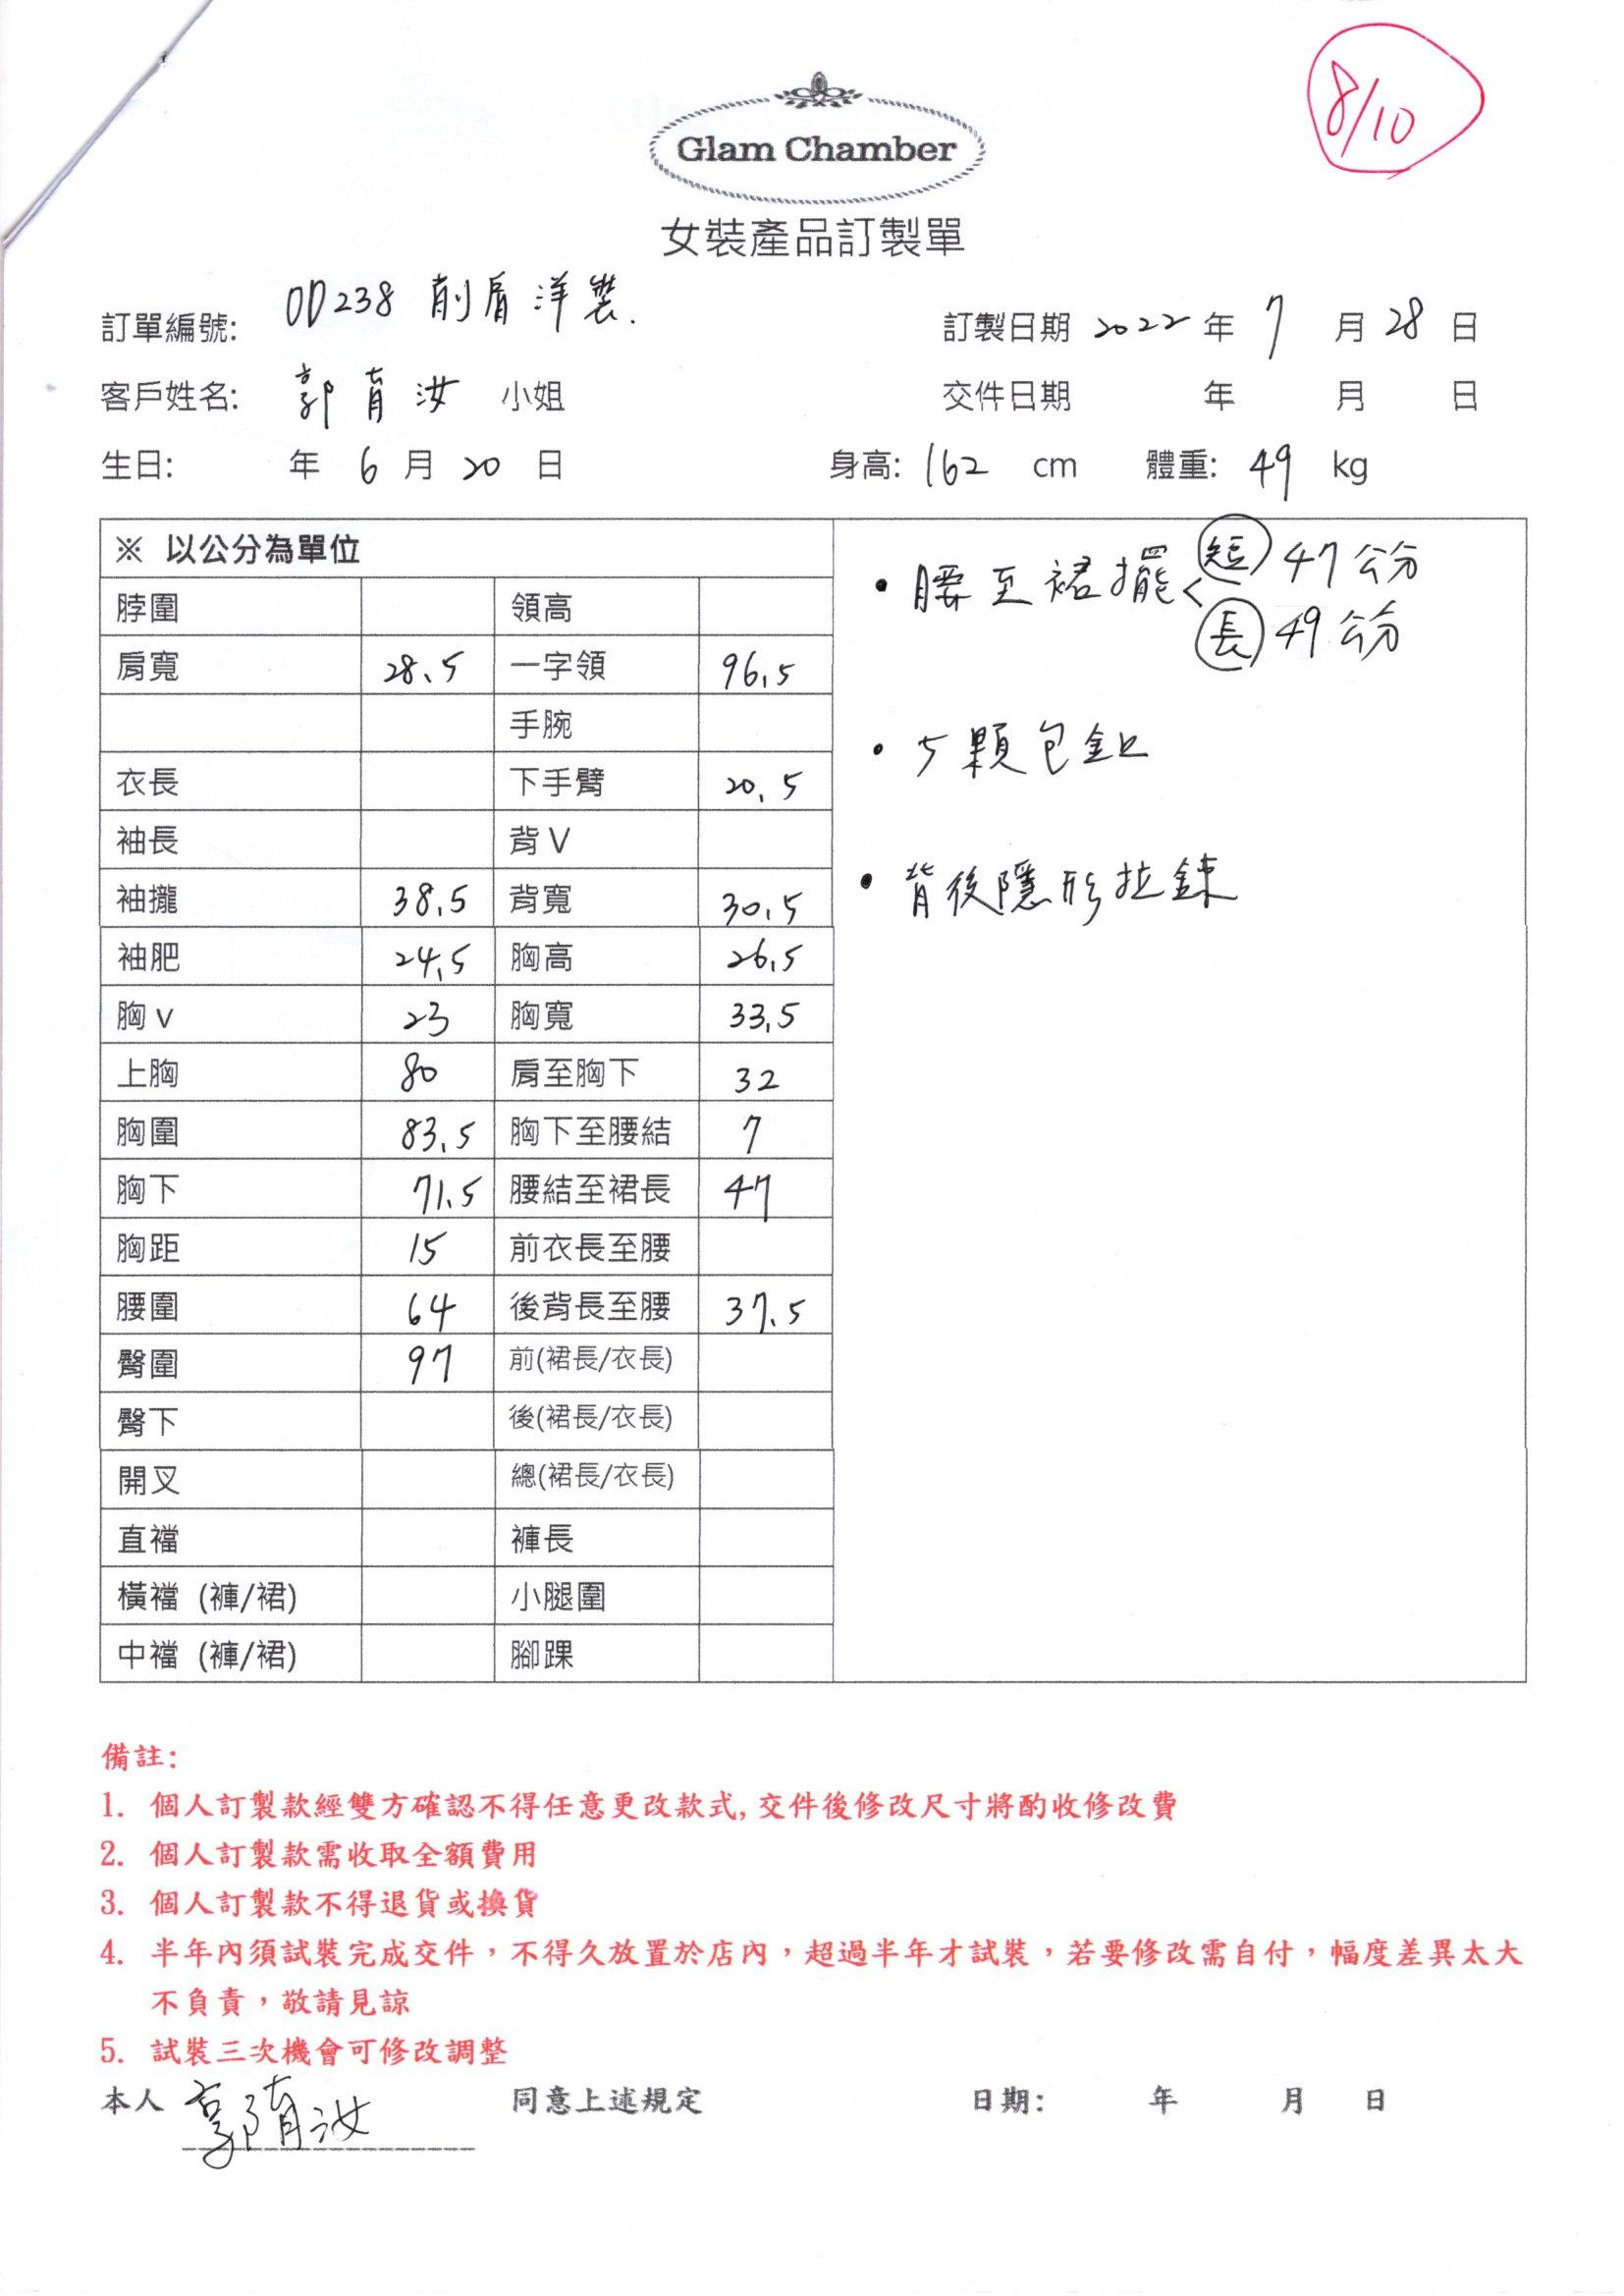 8/10
Glam Chamber
女裝產品訂製單
訂單編號: OD238 削肩洋裝. 訂製日期 2022 年 7 月 28 日
客戶姓名: 郭育汝 小姐 交件日期 年 月 日
生日: 年 6 月 20 日 身高: 162 cm 體重: 49 kg
※ 以公分為單位
脖圍 領高
肩寬 28.5 一字領 96.5
手腕
衣長 下手臂 20.5
袖長 背V
袖攏 38.5 背寬 30.5
袖肥 24.5 胸高 26.5
胸v 23 胸寬 33.5
上胸 80 肩至胸下 32
胸圍 83.5 胸下至腰結 7
胸下 71.5 腰結至裙長 47
胸距 15 前衣長至腰
腰圍 64 後背長至腰 37.5
臀圍 97 前(裙長/衣長)
臀下 後(裙長/衣長)
開叉 總(裙長/衣長)
直襠 褲長
橫襠 (褲/裙) 小腿圍
中襠 (褲/裙) 腳踝
• 腰至裙擺 < 短 47公分
長 49公分
• 5顆包釦
• 背後隱形拉鍊
備註:
1. 個人訂製款經雙方確認不得任意更改款式, 交件後修改尺寸將酌收修改費
2. 個人訂製款需收取全額費用
3. 個人訂製款不得退貨或換貨
4. 半年內須試裝完成交件，不得久放置於店內，超過半年才試裝，若要修改需自付，幅度差異太大
不負責，敬請見諒
5. 試裝三次機會可修改調整
本人 郭育汝 同意上述規定 日期: 年 月 日